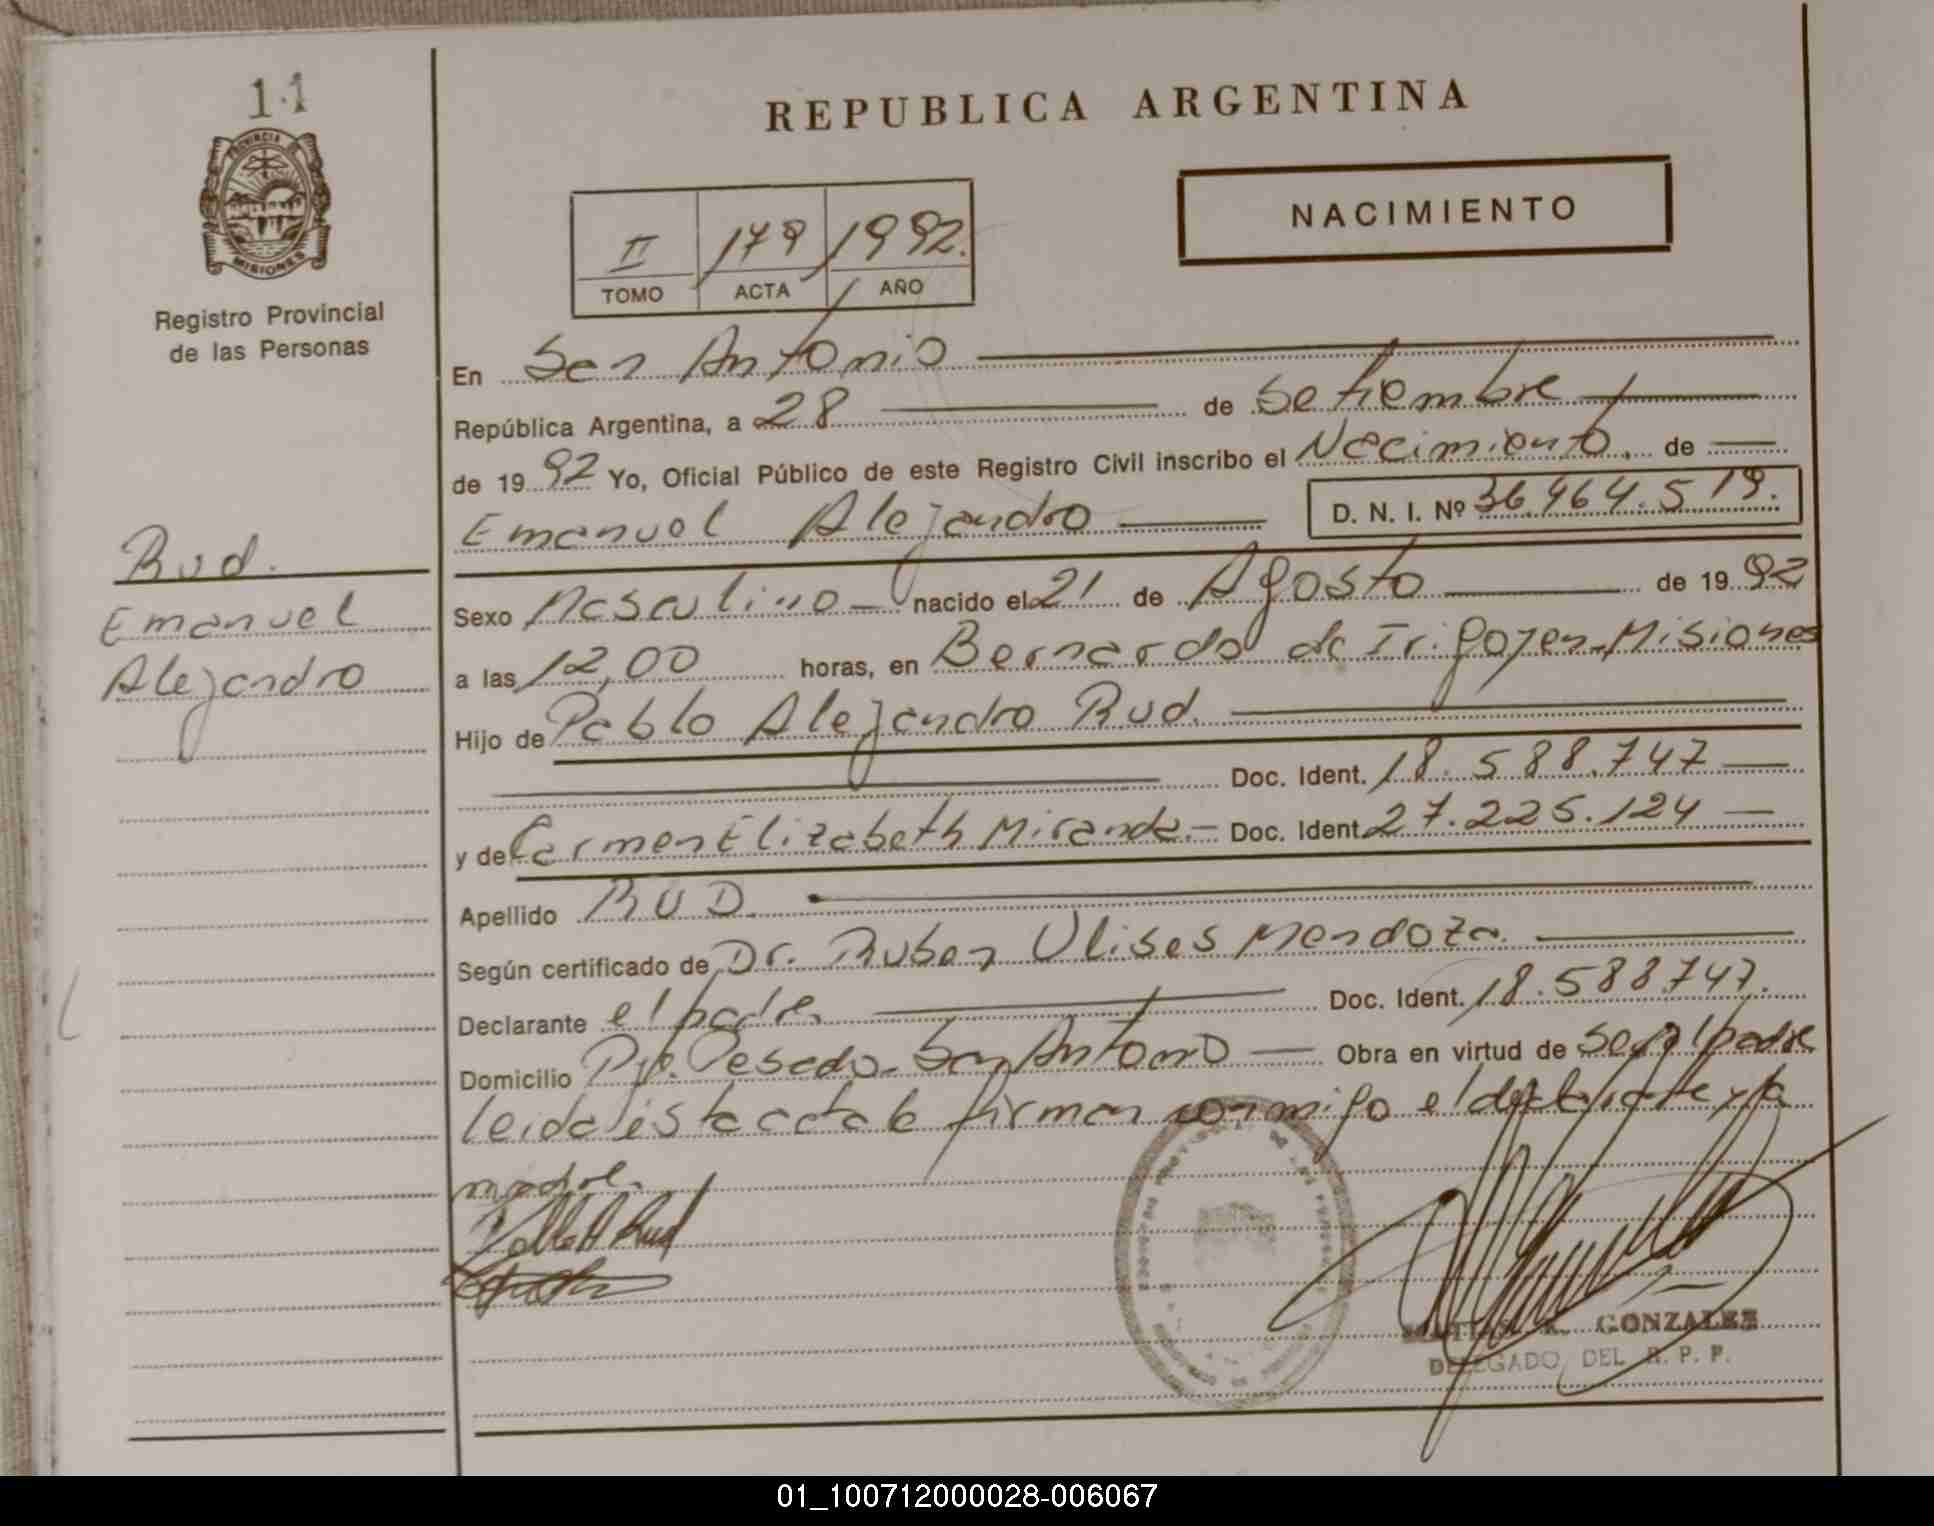 11
PROVINCIA DE
MISIONES
Registro Provincial
de las Personas
Rud.
Emanuel
Alejandro
REPUBLICA ARGENTINA
NACIMIENTO
II 179 1992.
TOMO ACTA AÑO
En San Antonio
República Argentina, a 28 de Setiembre
de 1992 Yo, Oficial Público de este Registro Civil inscribo el Nacimiento. de
Emanuel Alejandro D. N. I. Nº 36.464.519.
Sexo Masculino nacido el 21 de Agosto de 1992
a las 12,00 horas, en Bernardo de Irigoyen-Misiones
Hijo de Pablo Alejandro Rud.
Doc. Ident. 18.588.747
y de Carmen Elizabeth Miranda.- Doc. Ident. 27.225.124
Apellido RUD.
Según certificado de Dr. Ruben Ulises Mendoza.
Declarante el padre. Doc. Ident. 18.588.747.
Domicilio Pje. Pesado. San Antonio Obra en virtud de ser el padre
leida esta acta la firman conmigo el declarante y la
madre.
Pablo A Rud
GONZALEZ
DELEGADO DEL R. P. P.
01_100712000028-006067